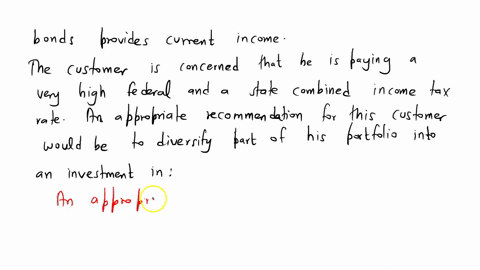 bonds provides current income.
The customer is concerned that he is paying a
very high federal and a state combined income tax
rate. An appropriate recommendation for this customer
would be to diversify part of his portfolio into
an investment in:
An appropr